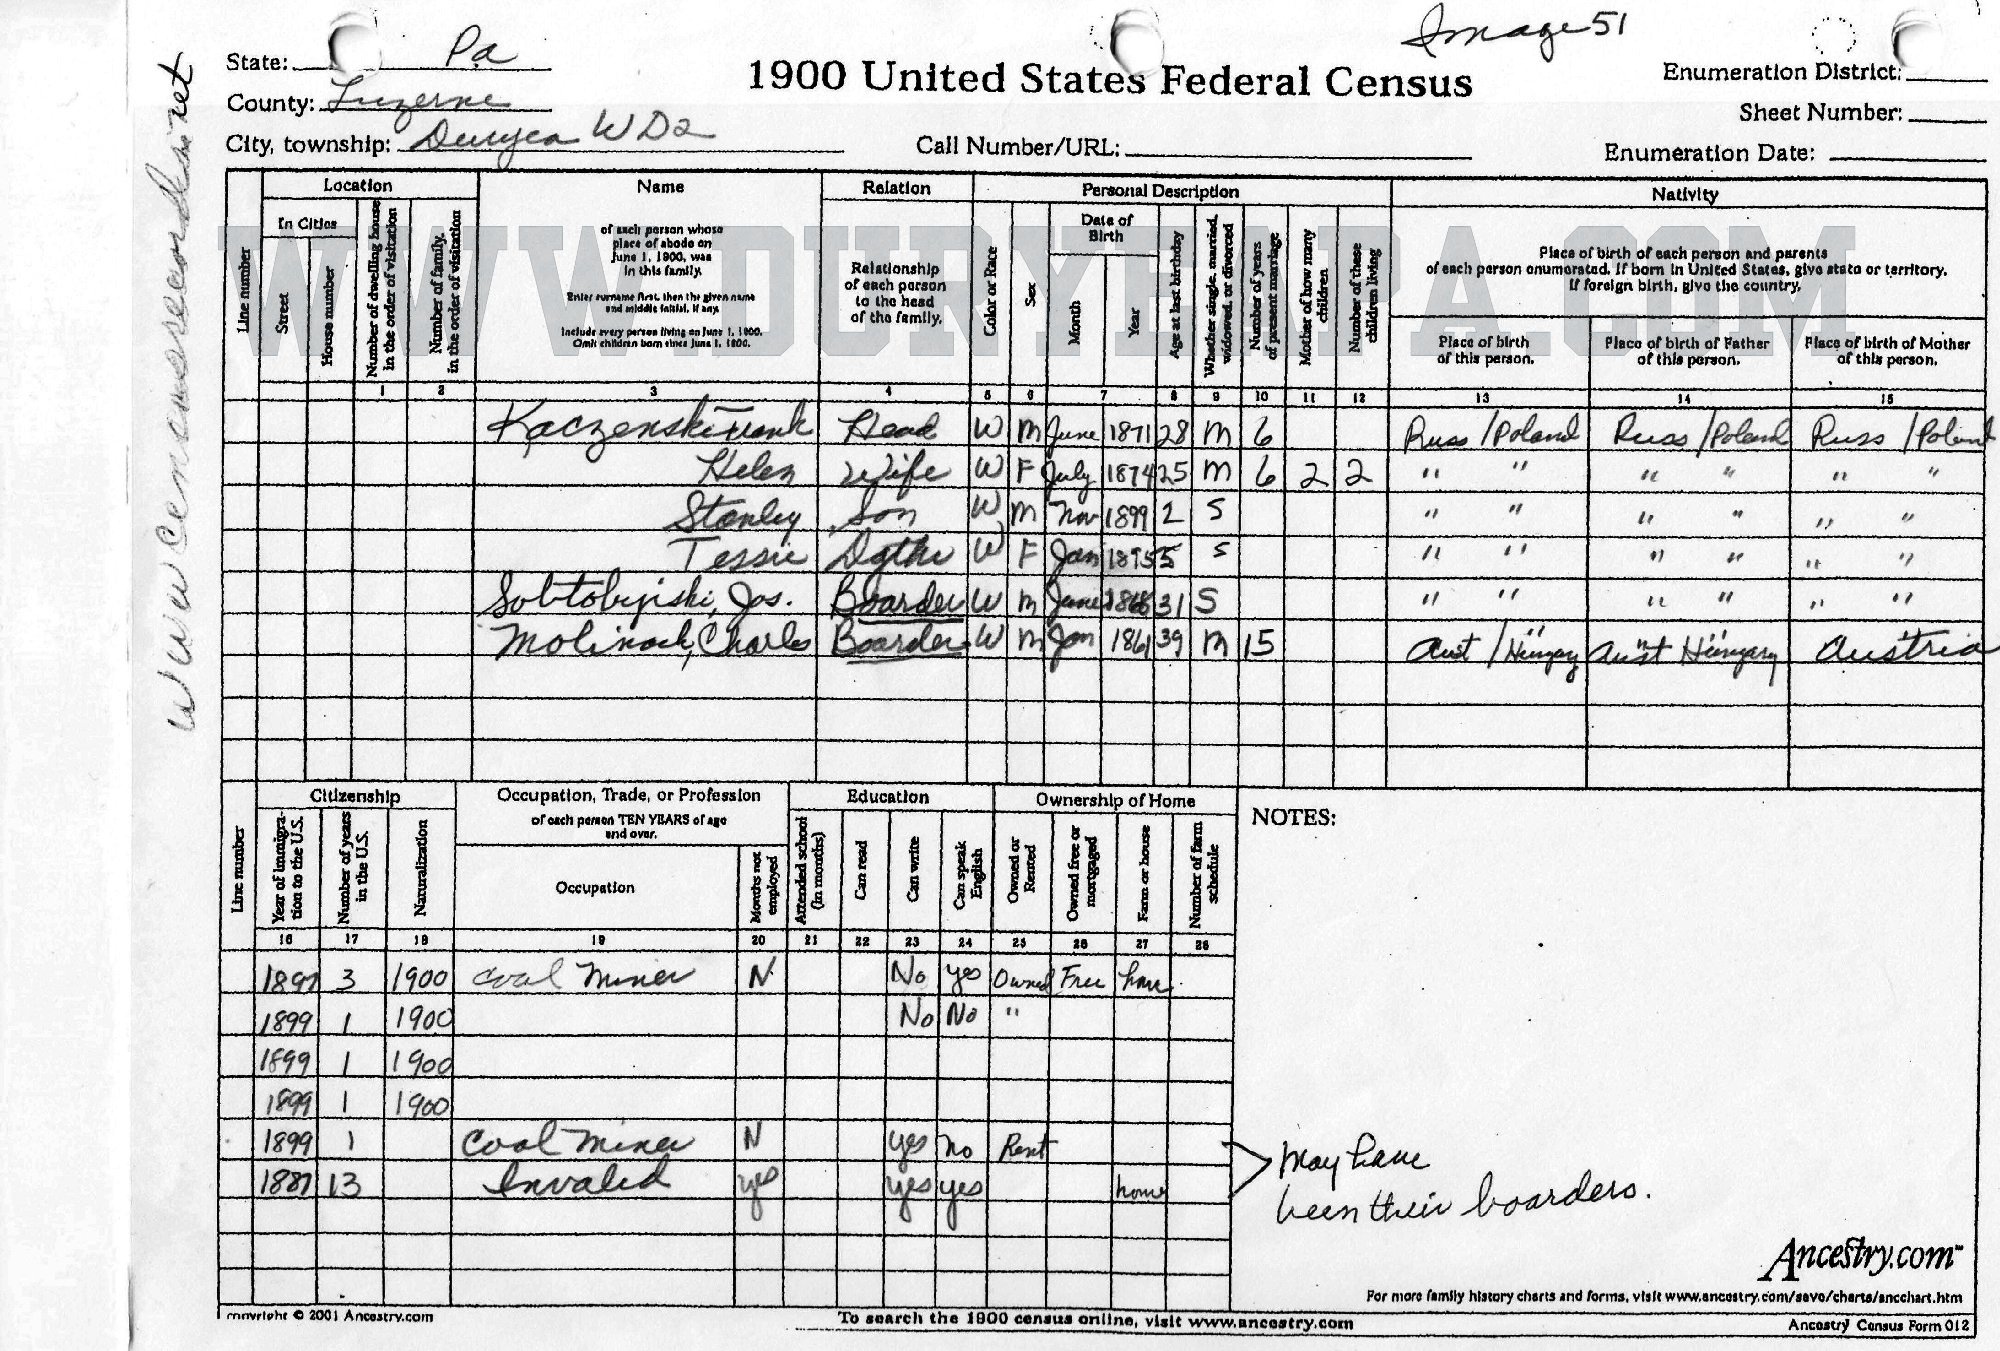 Image 51
State: Pa
County: Luzerne
City, township: Duryea WD2
1900 United States Federal Census
Call Number/URL:
Enumeration District:
Sheet Number:
Enumeration Date:
www censusrecords.net
WWW.DURYEAPA.COM
Line number
Location
In Cities
Street
House number
Number of dwelling house in the order of visitation
Number of family, in the order of visitation
Name
of each person whose
place of abode on
June 1, 1900, was
in this family.
Enter surname first, then the given name
and middle initial, if any.
Include every person living on June 1, 1900.
Omit children born since June 1, 1900.
Relation
Relationship
of each person
to the head
of the family.
Personal Description
Color or Race
Sex
Date of
Birth
Month
Year
Age at last birthday
Whether single, married, widowed, or divorced
Number of years of present marriage
Mother of how many children
Number of these children living
Nativity
Place of birth of each person and parents
of each person enumerated. If born in United States, give state or territory.
If foreign birth, give the country.
Place of birth
of this person.
Place of birth of Father
of this person.
Place of birth of Mother
of this person.
1 2 3 4 5 6 7 8 9 10 11 12 13 14 15
Kaczenski Frank Head W M June 1871 28 M 6 Russ/Poland Russ/Poland Russ/Poland
Helen Wife W F July 1874 25 M 6 2 2 " " " " " "
Stanley Son W M Nov 1899 2 S " " " " " "
Tessie Dgthr W F Jan 1895 5 S " " " " " "
Jos. Boarder W M June 1868 31 S " " " " " "
Charles Boarder W M Jan 1861 39 M 15 Aust/Hungary Aust Hungary Austria
Line number
Citizenship
Year of immigration to the U.S.
Number of years in the U.S.
Naturalization
Occupation, Trade, or Profession
of each person TEN YEARS of age
and over.
Occupation
Months not employed
Education
Attended school (in months)
Can read
Can write
Can speak English
Ownership of Home
Owned or Rented
Owned free or mortgaged
Farm or house
Number of farm schedule
NOTES:
16 17 18 19 20 21 22 23 24 25 26 27 28
1897 3 1900 Coal Miner N No yes Owned Free
1899 1 1900 No No "
1899 1 1900
1899 1 1900
1899 1 Coal Miner N yes no Rent
1887 13 Invalid yes yes yes home
May have
been their boarders.
Ancestry.com™
For more family history charts and forms, visit www.ancestry.com/save/charts/ancchart.htm
copyright © 2001 Ancestry.com
To search the 1900 census online, visit www.ancestry.com
Ancestry Census Form 012